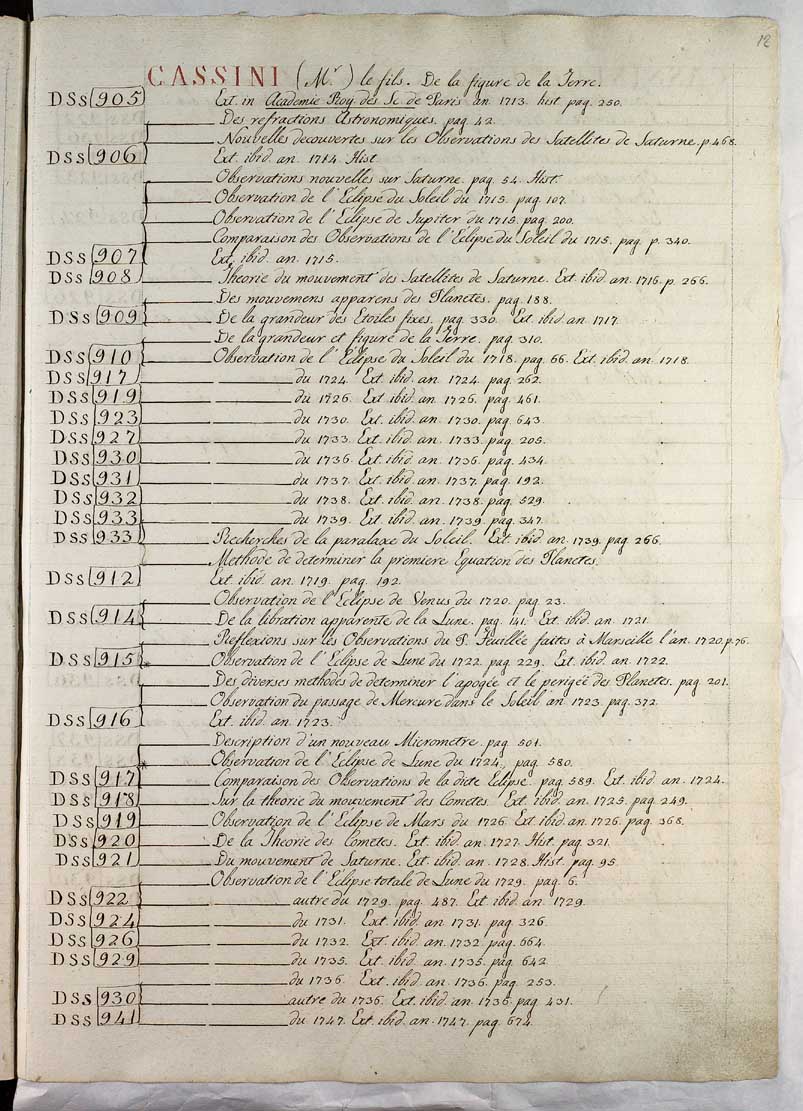 12
CASSINI (Mr) le fils. De la figure de la Terre.
DSs 905 Ext. in Academie Roy. des Sc. de Paris an. 1713. hist pag. 250.
Des refractions Astronomiques. pag. 42.
Nouvelles decouvertes sur les Observations des Satellites de Saturne. p. 468.
DSs 906 Ext. ibid. an. 1714. Hist
Observations nouvelles sur Saturne. pag. 54. Hist.
Observation de l'Eclipse du Soleil du 1715. pag. 107.
Observation de l'Eclipse de Jupiter du 1715. pag. 200.
Comparaison des Observations de l'Eclipse du Soleil du 1715. pag. p. 340.
DSs 907 Ext. ibid. an. 1715.
DSs 908 Theorie du mouvement des Satellites de Saturne. Ext. ibid. an. 1716. p. 266.
Des mouvemens apparens des Planetes. pag. 188.
DSs 909 De la grandeur des Etoiles fixes. pag. 330. Ext. ibid. an. 1717.
De la grandeur et figure de la Terre. pag. 310.
DSs 910 Observation de l'Eclipse du Soleil du 1718. pag. 66. Ext. ibid. an. 1718.
DSs 917 du 1724. Ext. ibid. an. 1724. pag. 262.
DSs 919 du 1726. Ext. ibid. an. 1726. pag. 461.
DSs 923 du 1730. Ext. ibid. an. 1730. pag. 643.
DSs 927 du 1733. Ext. ibid. an. 1733. pag. 205.
DSs 930 du 1736. Ext. ibid. an. 1736. pag. 434.
DSs 931 du 1737. Ext. ibid. an. 1737. pag. 192.
DSs 932 du 1738. Ext. ibid. an. 1738. pag. 529.
DSs 933 du 1739. Ext. ibid. an. 1739. pag. 347.
DSs 933 Recherches de la paralaxe du Soleil. Ext. ibid. an. 1739. pag. 266.
Methode de determiner la premiere Equation des Planetes.
DSs 912 Ext. ibid. an. 1719. pag. 192.
Observation de l'Eclipse de Venus du 1720. pag. 23.
DSs 914 De la libration apparente de la Lune. pag. 141. Ext. ibid. an. 1721.
Reflexions sur les Observations du P. Feuillée faites à Marseille l'an. 1720. p. 76.
DSs 915 * Observation de l'Eclipse de Lune du 1722. pag. 229. Ext. ibid. an. 1722.
Des diverses methodes de determiner l'apogée et le perigée des Planetes. pag. 201.
Observation du passage de Mercure dans le Soleil an. 1723. pag. 372.
DSs 916 Ext. ibid. an. 1723.
Description d'un nouveau Micrometre. pag. 501.
* Observation de l'Eclipse de Lune du 1724. pag. 580.
DSs 917 Comparaison des Observations de la dicte Eclipse. pag. 589. Ext. ibid. an. 1724.
DSs 918 Sur la theorie du mouvement des Cometes. Ext. ibid. an. 1725. pag. 249.
DSs 919 Observation de l'Eclipse de Mars du 1726. Ext. ibid. an. 1726. pag. 368.
DSs 920 De la Theorie des Cometes. Ext. ibid. an. 1727. Hist. pag. 321.
DSs 921 Du mouvement de Saturne. Ext. ibid. an. 1728. Hist. pag. 95.
Observation de l'Eclipse totale de Lune du 1729. pag. 6.
DSs 922 autre du 1729. pag. 487. Ext ibid an. 1729.
DSs 924 du 1731. Ext. ibid. an. 1731. pag. 326.
DSs 926 du 1732. Ext. ibid. an. 1732 pag. 664.
DSs 929 du 1735. Ext. ibid. an. 1735. pag. 642.
du 1736. Ext. ibid. an. 1736. pag. 253.
DSs 930 autre du 1736. Ext. ibid. an. 1736. pag. 431.
DSs 941 du 1747. Ext. ibid. an. 1747. pag. 674.